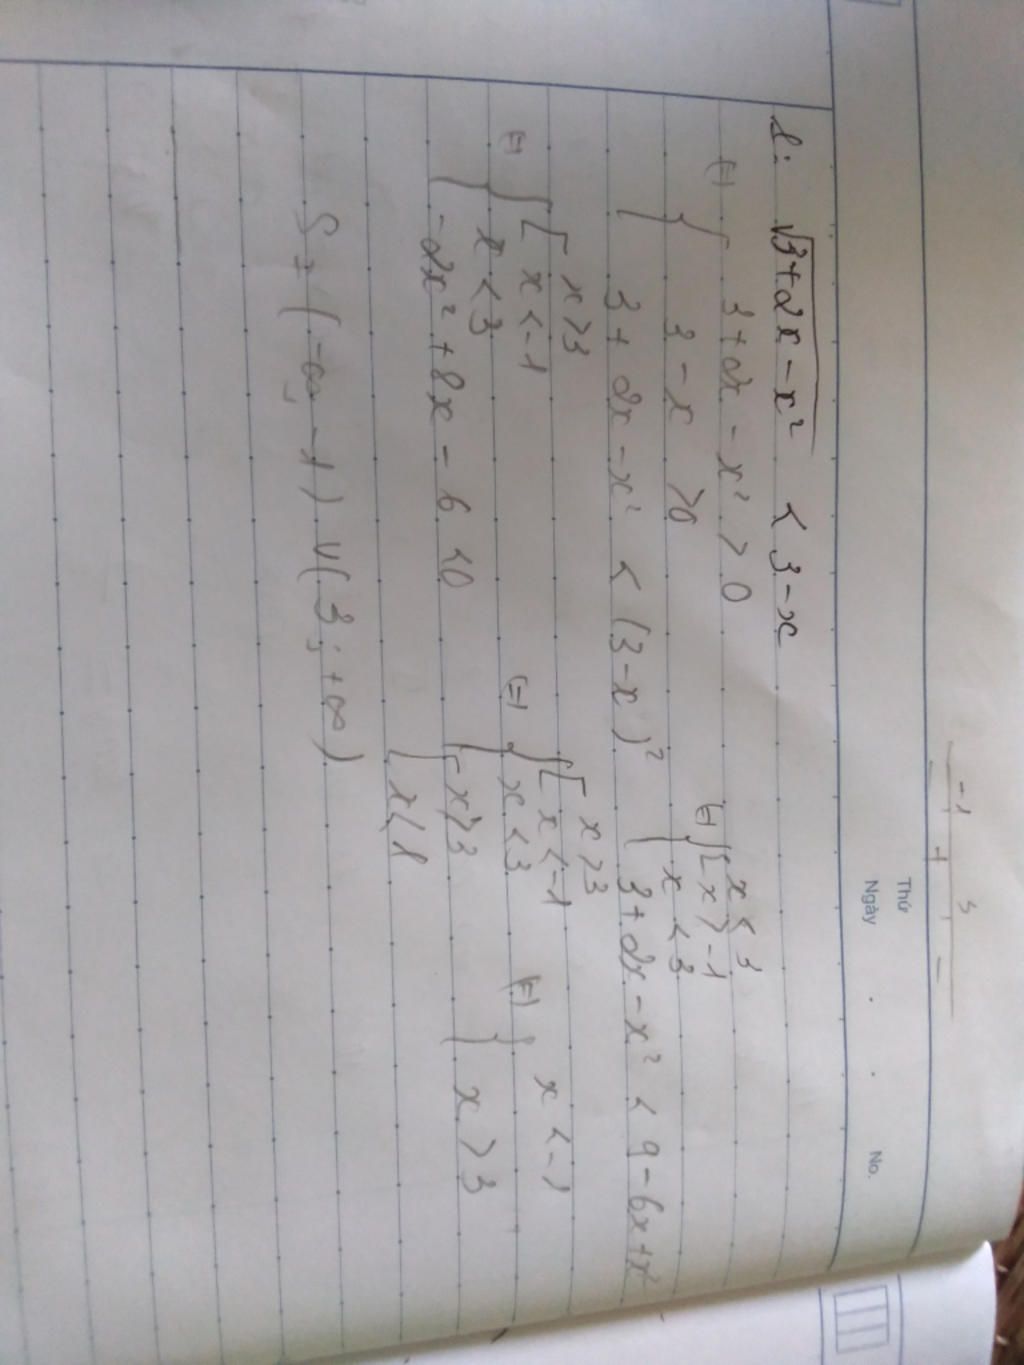 -1 3
+ -
Thứ
Ngày . . No.
1: √3+2x-x² < 3-x
(=) { 3+2x-x² > 0
3-x > 0
3+2x-x² < (3-x)²
(=) { [ x < 3
x > -1
x < 3
3+2x-x² < 9-6x+x²
(=) { [ x > 3
x < -1
x < 3
-2x²+8x-6 < 0
(=) { [ x > 3
x < -1
x < 3
[ x > 3
x < 1
(=) { x < -1
x > 3
S = (-∞; -1) ∪ (3; +∞)